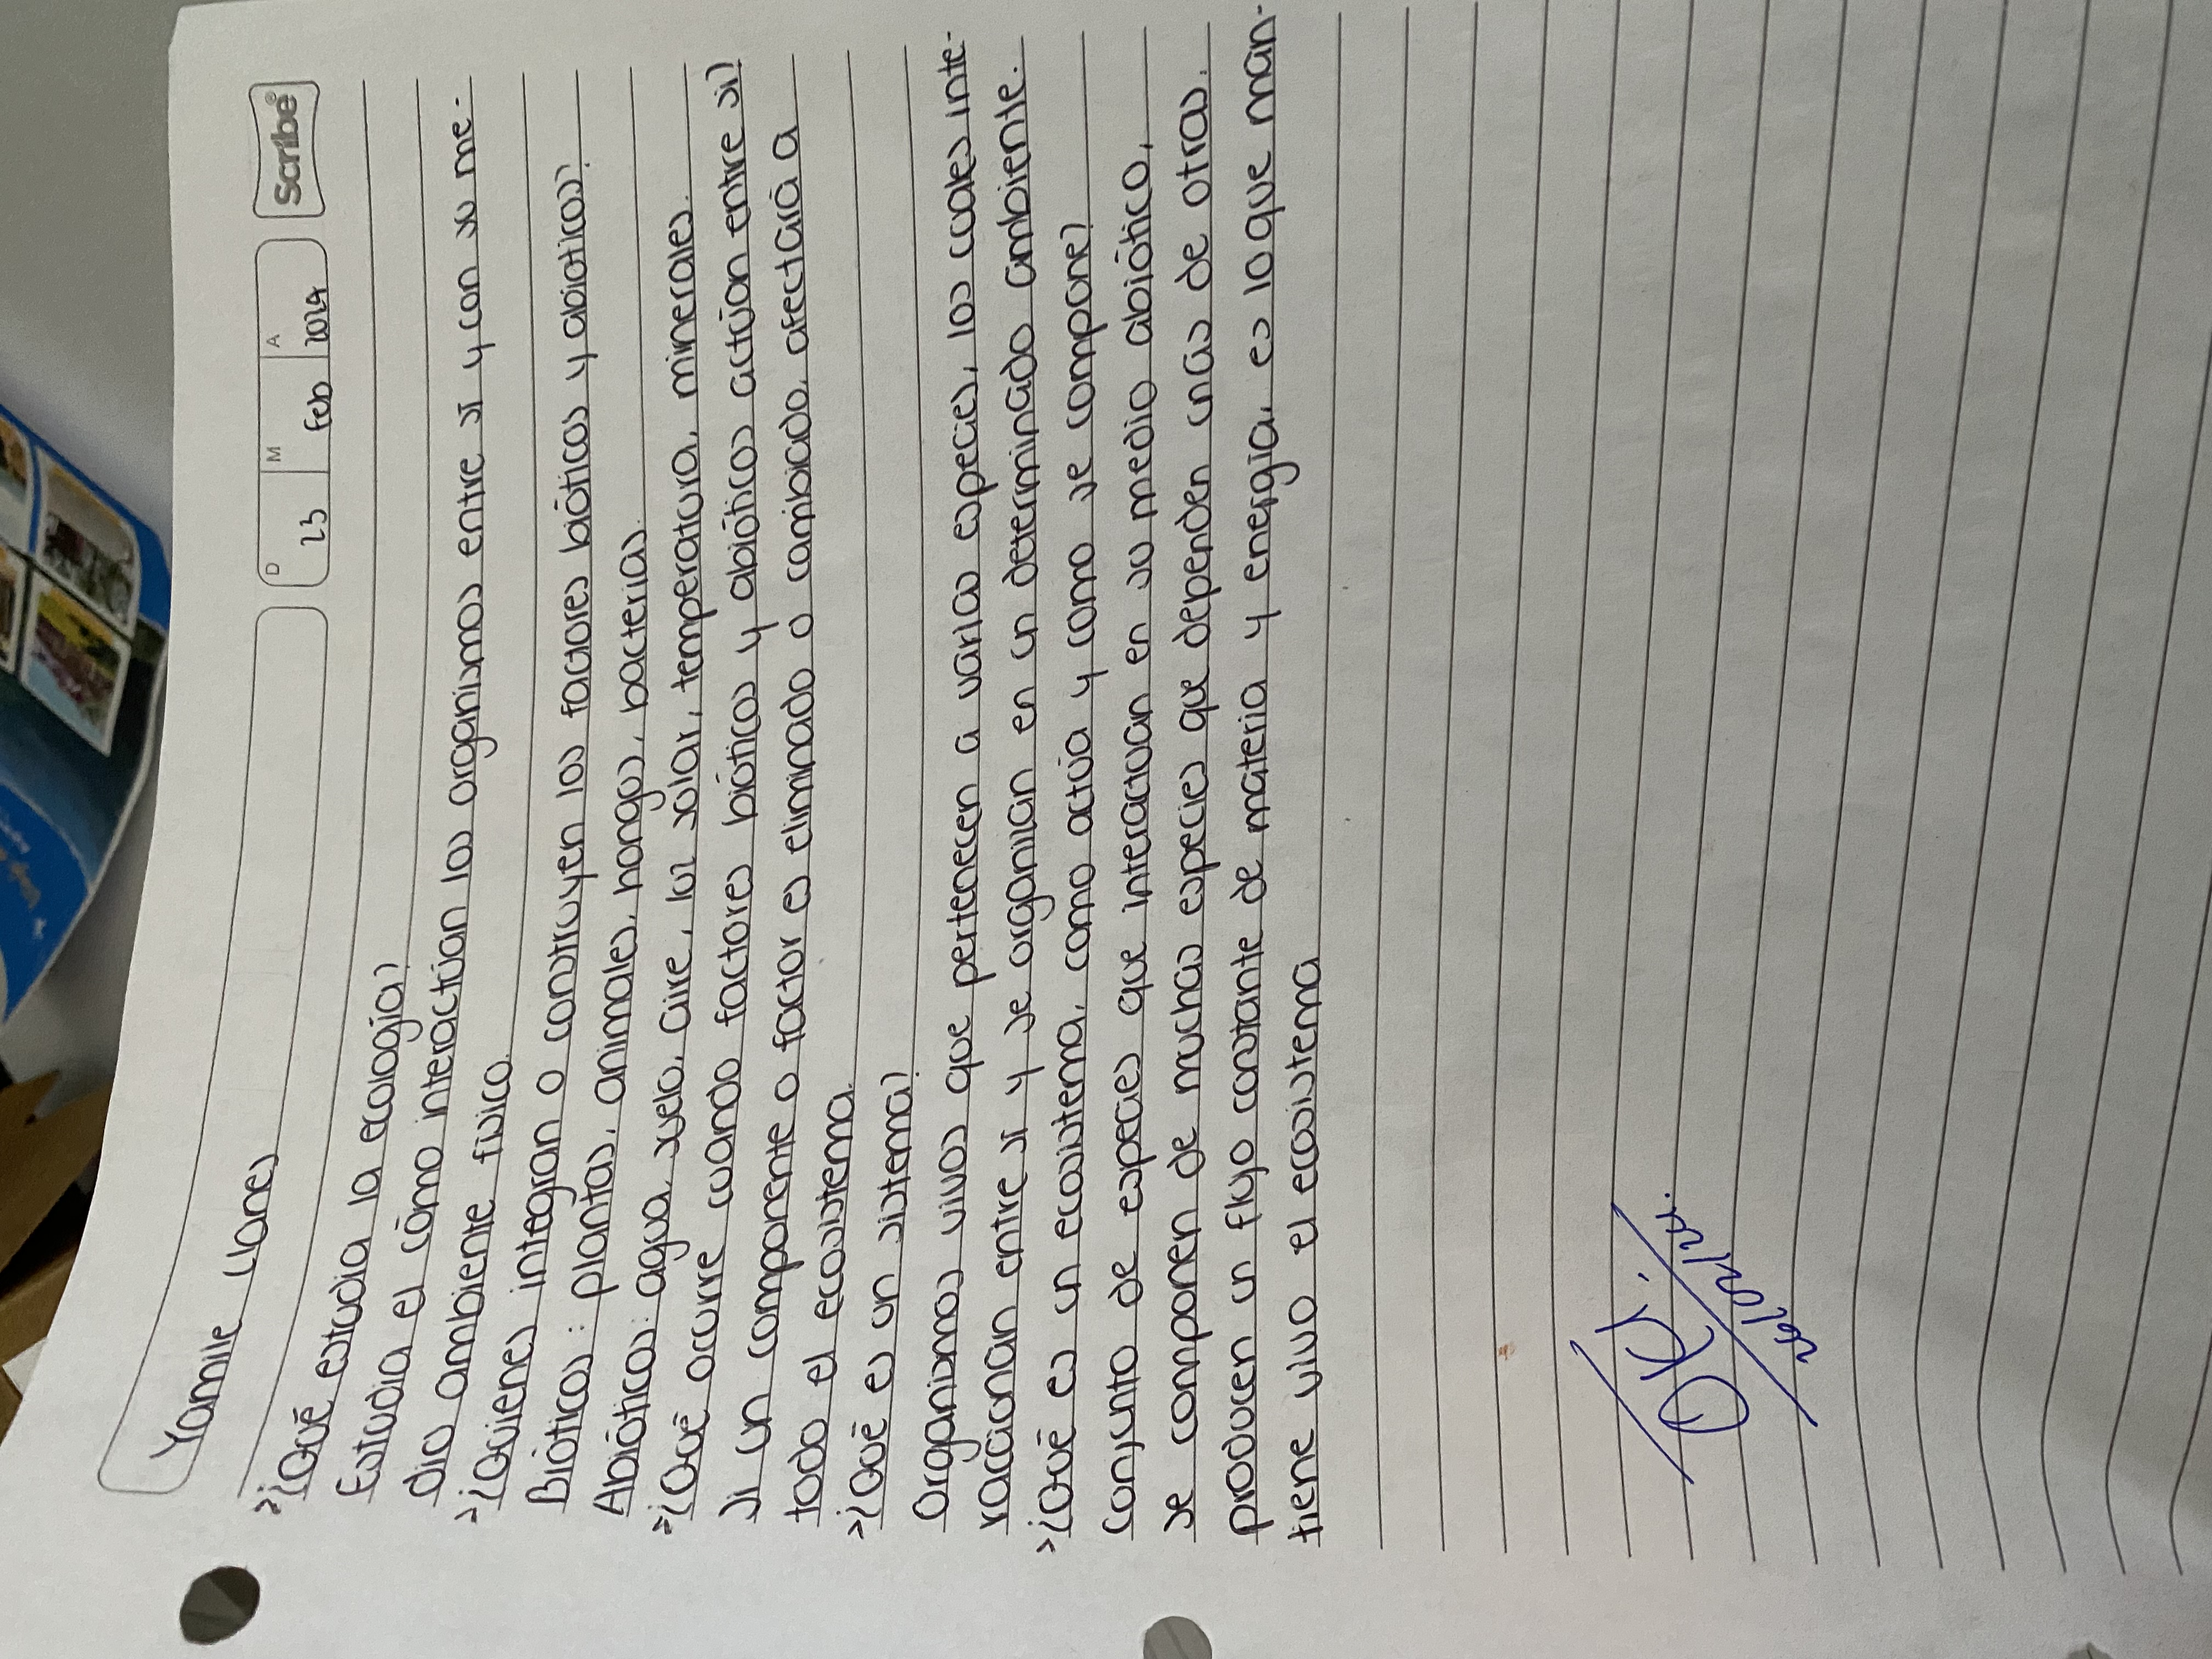 Yamile Llanes
D M A
23 Feb 2024
Scribe
»¿Qué estudia la ecología?
Estudia el cómo interactúan los organismos entre sí y con su me-
dio ambiente físico.
>¿Quienes integran o construyen los factores bióticos y abioticos?
Bióticos: plantas, animales, hongos, bacterias.
Abióticos: agua, suelo, aire, luz solar, temperatura, minerales.
»¿Qué ocurre cuando factores bióticos y abióticos actúan entre sí?
Si un componente o factor es eliminado o cambiado, afectará a
todo el ecosistema.
>¿Qué es un sistema?
Organismos vivos que pertenecen a varias especies, los cuales inte-
raccionan entre sí y se organizan en un determinado ambiente.
>¿Qué es un ecosistema, como actúa y como se compone?
Conjunto de especies que interactuan en su medio abiótico,
se componen de muchas especies que dependen unas de otras.
producen un flujo constante de materia y energia, es lo que man-
tiene vivo el ecosistema